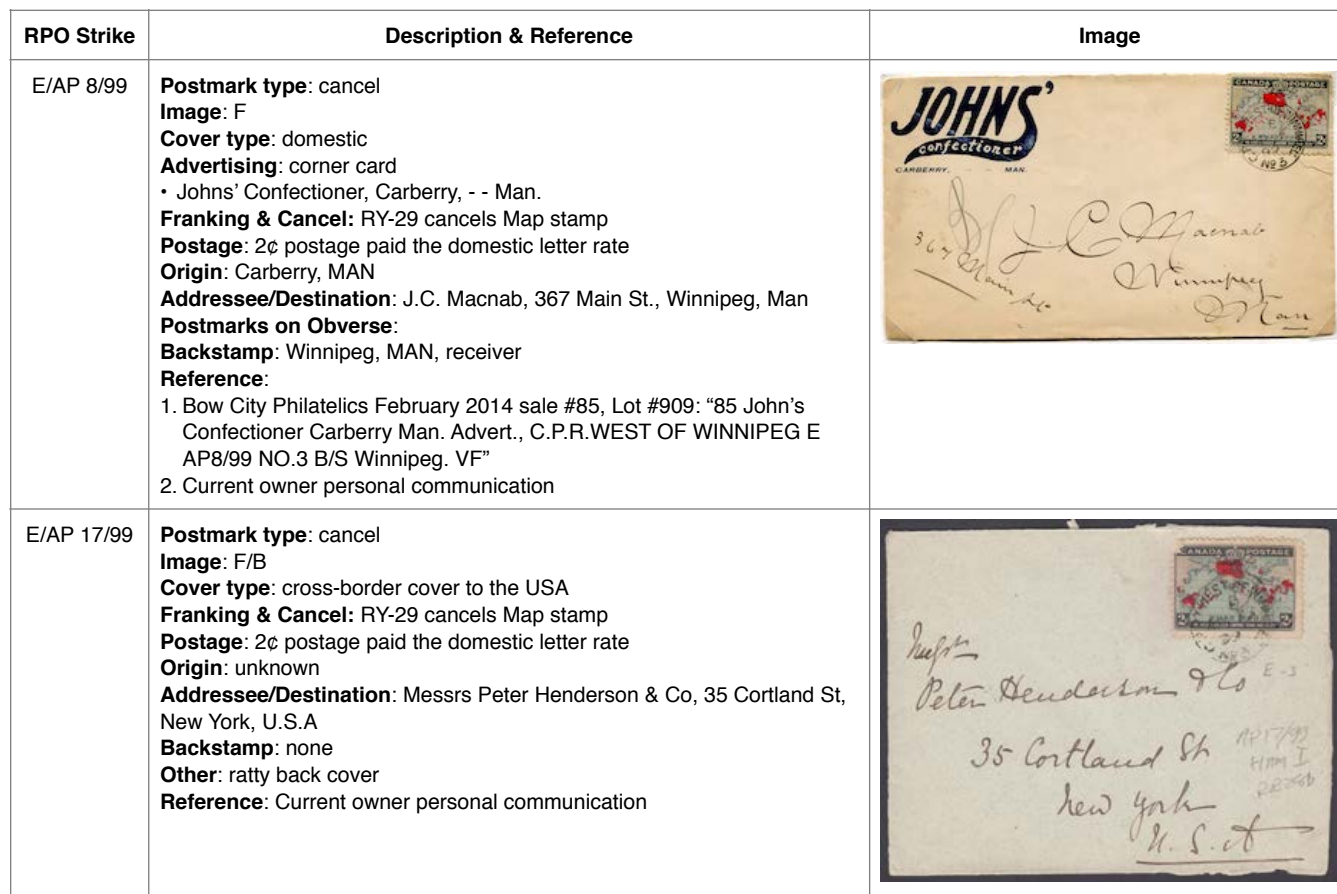 RPO Strike
Description & Reference
Image
E/AP 8/99
Postmark type: cancel
Image: F
Cover type: domestic
Advertising: corner card
• Johns’ Confectioner, Carberry, - - Man.
Franking & Cancel: RY-29 cancels Map stamp
Postage: 2¢ postage paid the domestic letter rate
Origin: Carberry, MAN
Addressee/Destination: J.C. Macnab, 367 Main St., Winnipeg, Man
Postmarks on Obverse:
Backstamp: Winnipeg, MAN, receiver
Reference:
1. Bow City Philatelics February 2014 sale #85, Lot #909: “85 John’s
Confectioner Carberry Man. Advert., C.P.R.WEST OF WINNIPEG E
AP8/99 NO.3 B/S Winnipeg. VF”
2. Current owner personal communication
JOHNS’
confectioner
CARBERRY, MAN.
CANADA POSTAGE
Nº 3
J C Macnab
367 Main St
Winnipeg
Man
E/AP 17/99
Postmark type: cancel
Image: F/B
Cover type: cross-border cover to the USA
Franking & Cancel: RY-29 cancels Map stamp
Postage: 2¢ postage paid the domestic letter rate
Origin: unknown
Addressee/Destination: Messrs Peter Henderson & Co, 35 Cortland St,
New York, U.S.A
Backstamp: none
Other: ratty back cover
Reference: Current owner personal communication
CANADA POSTAGE
Peter Henderson & Co
E-3
35 Cortland St
AP17/99
New York
U.S.A